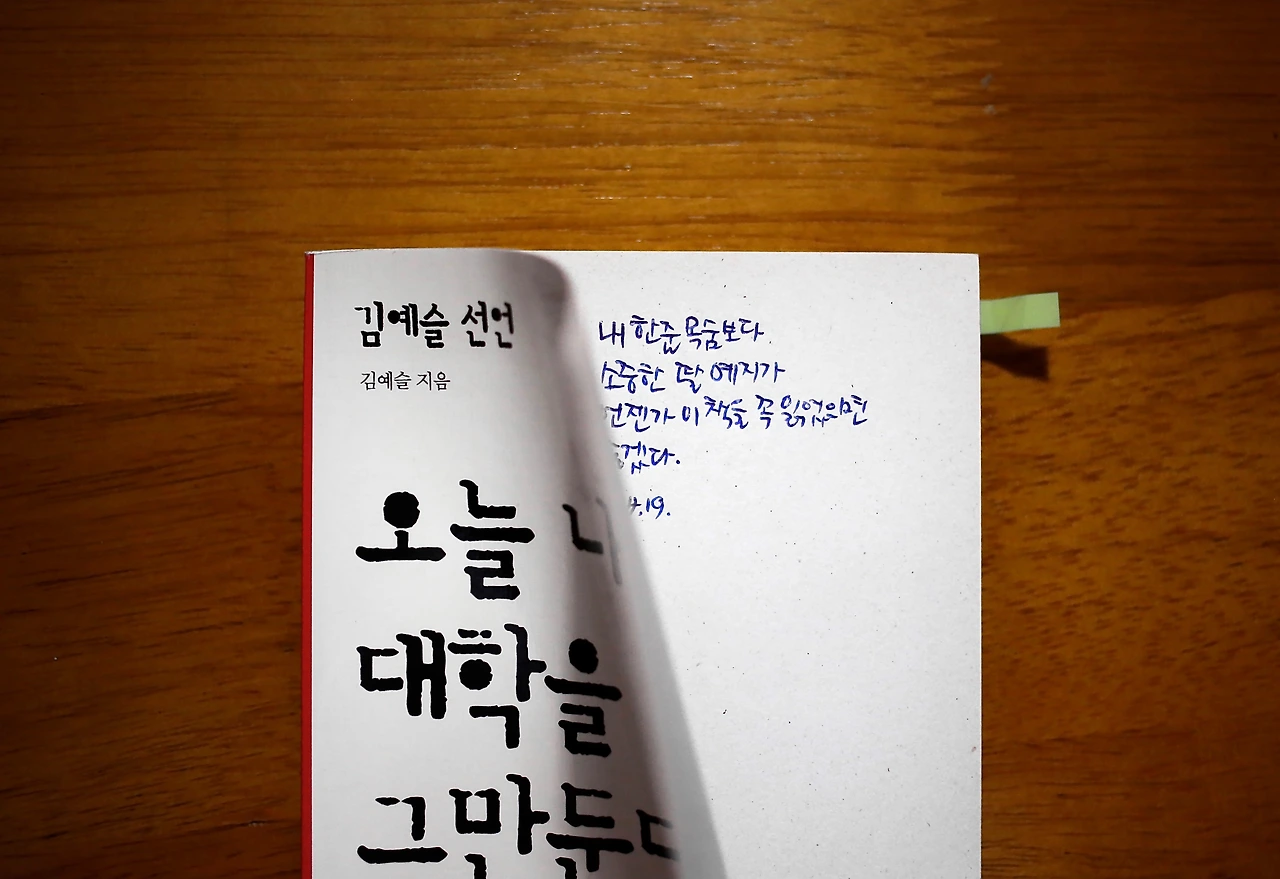 김예슬 선언
김예슬 지음
오늘
대학을
그만둔다
내 한줌 목숨보다
소중한 딸 예지가
언젠가 이 책을 꼭 읽었으면
4.19.